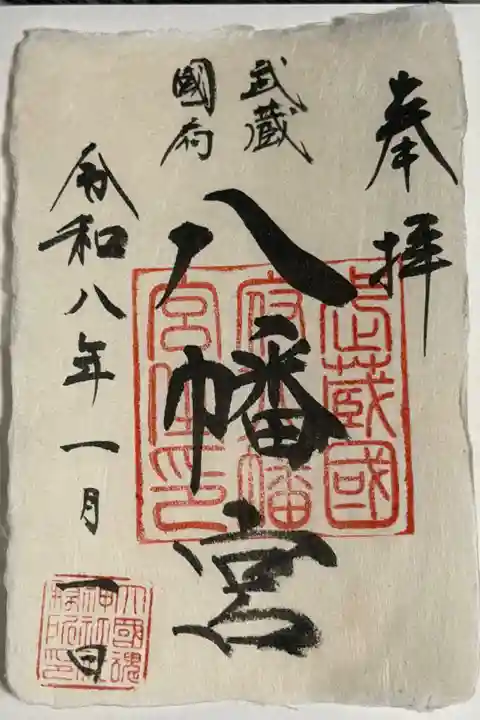 奉拝
武蔵
國府
八幡宮
令和八年一月一日
武蔵國
府八幡
宮住印
大國魂
神社社
務所印